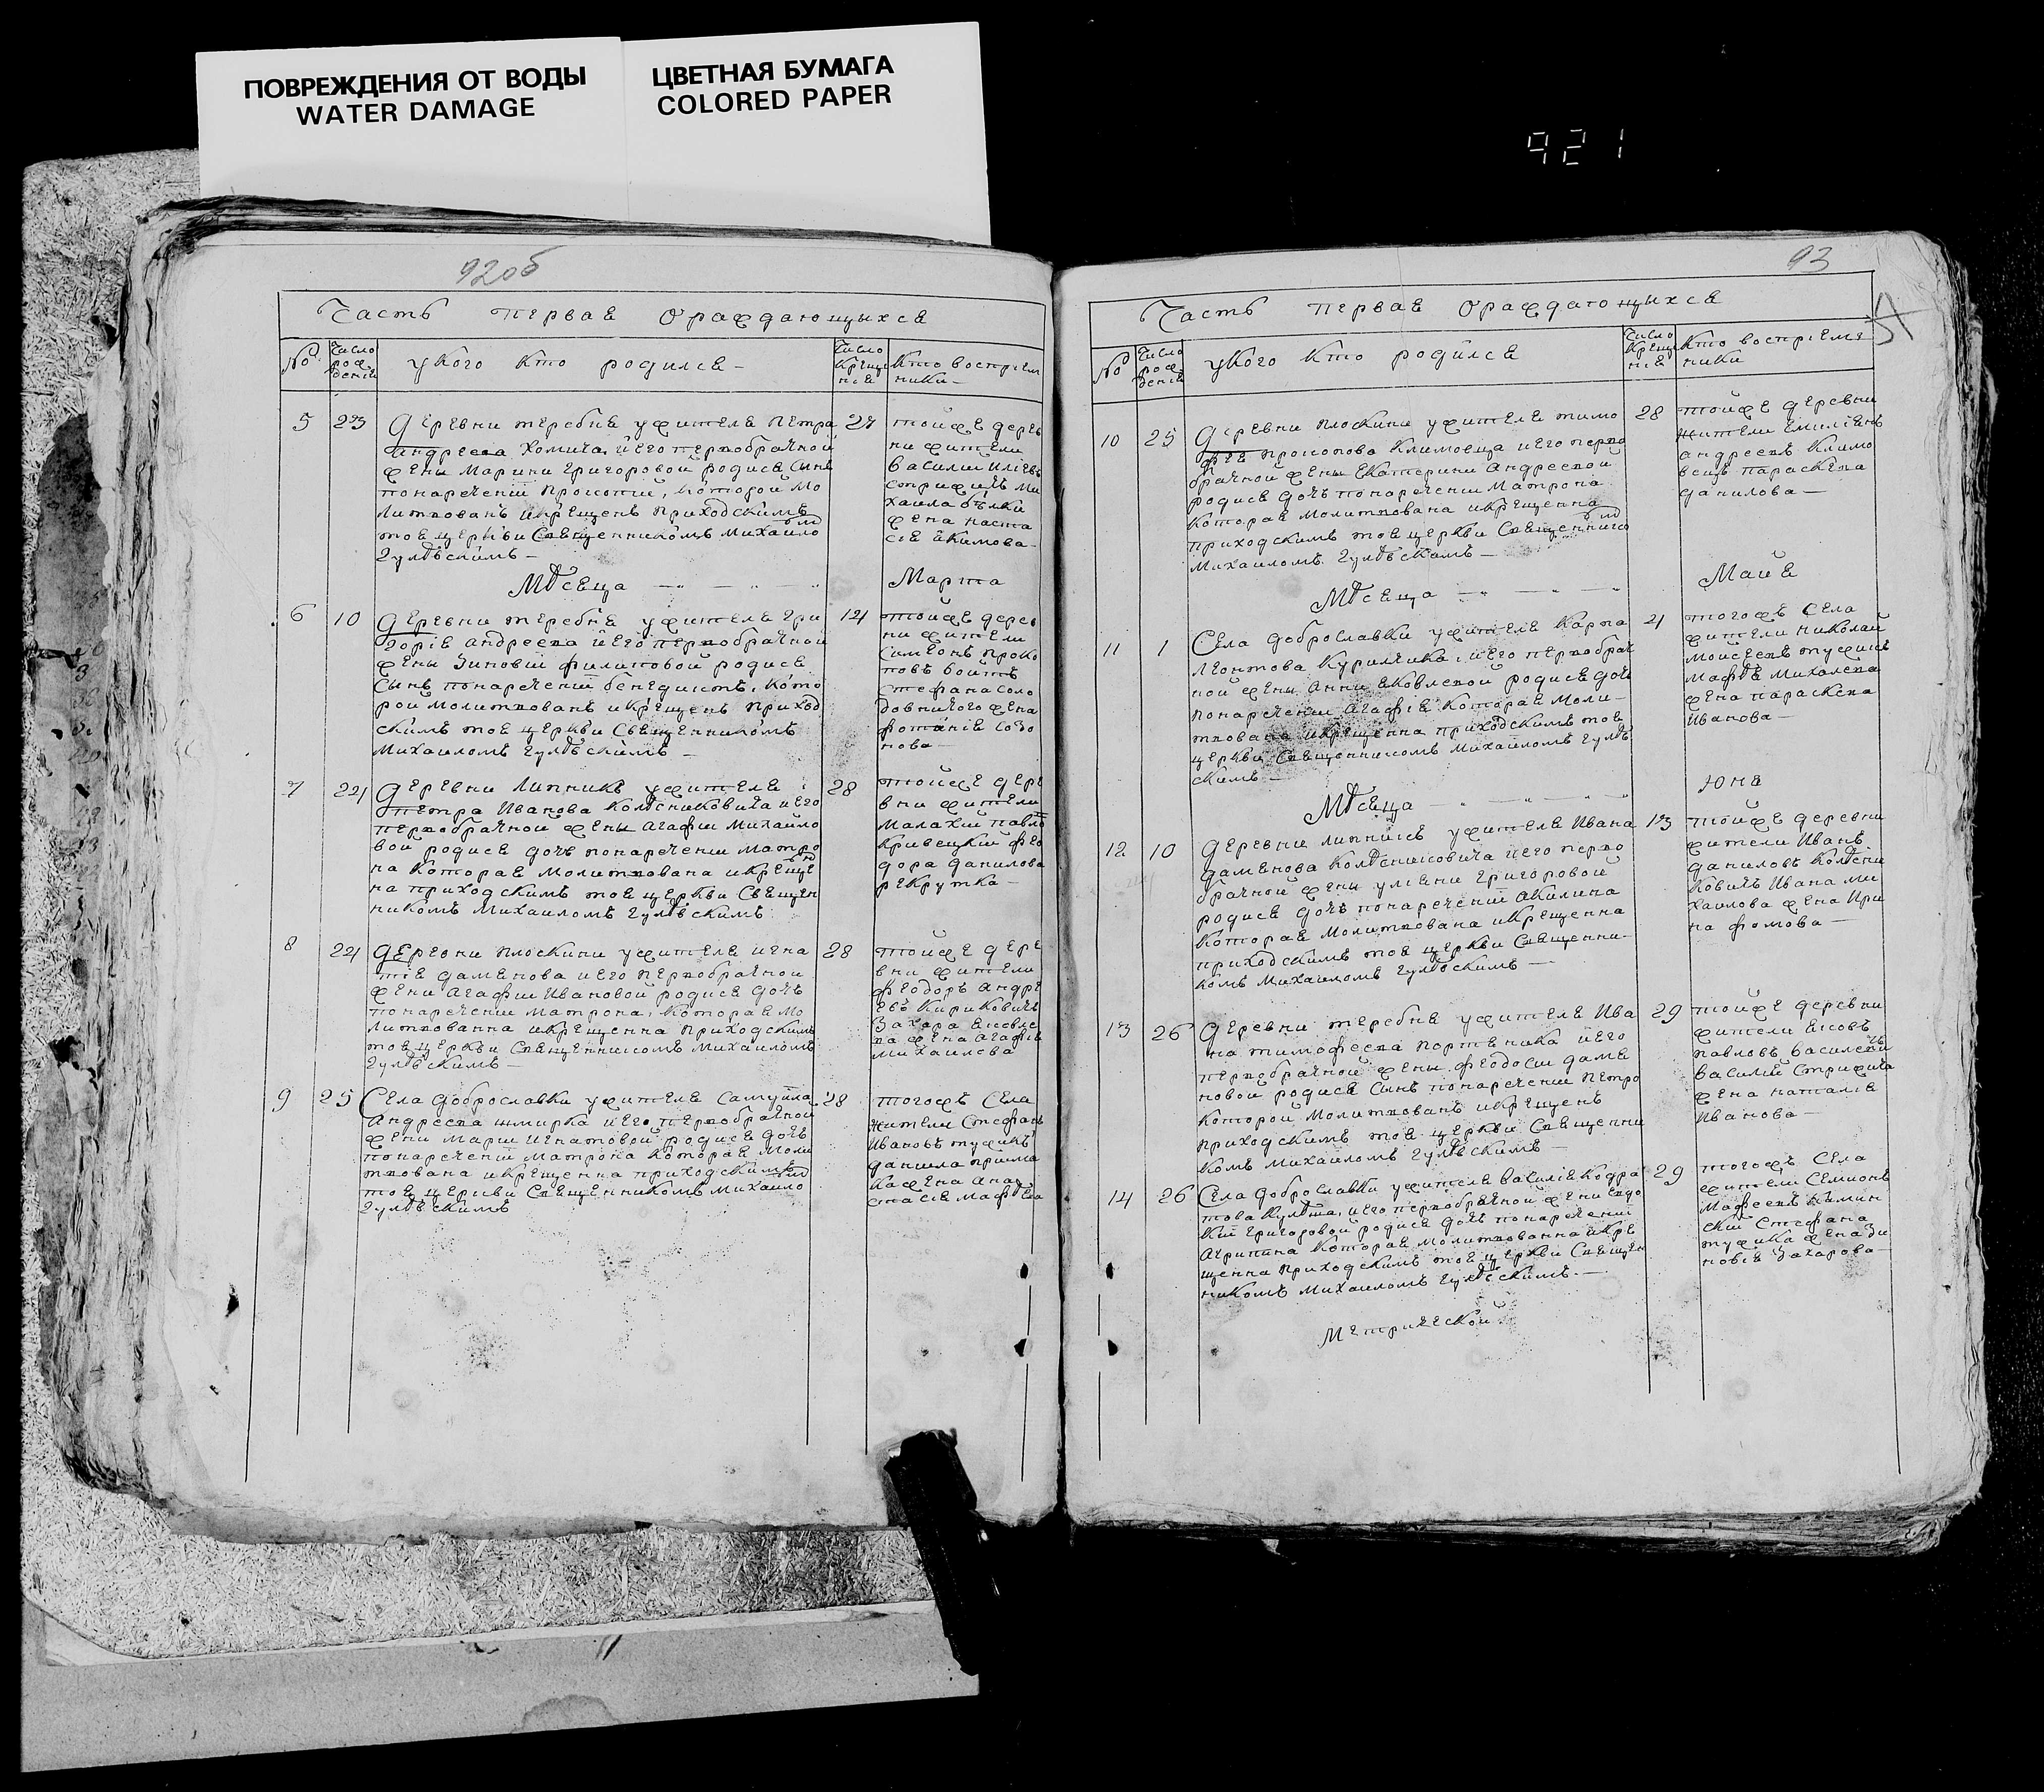 ПОВРЕЖДЕНИЯ ОТ ВОДЫ
WATER DAMAGE
ЦВЕТНАЯ БУМАГА
COLORED PAPER
921
92об
Часть первая ораждающыхся
№
Число рождения
укого кто родился
Число крещения
Кто восприемники
5 23 27
Деревни теребня ужителя Петра
Андреева Хомича, и его первобрачной
жены Марини Григоровой родися Сынъ
понаречении Прокопий, которой мо
литвованъ икрещенъ приходскимъ
тоя церкви Священникомъ Михаило
Гулѣвскимъ
тойже дерев
ни жители
Василий Илiевъ
стрижичъ Ми
хаила бѣлки
жена наста
сiя Якимова
Мѣсяца Марта
6 10 14
Деревни теребня ужителя Гри
горiя андреева и его первобрачной
жены Зиновии филиповой родися
Сынъ понаречении бенедиктъ, кото
рой молитвованъ икрещенъ приход
скимъ тоя церкви Священникомъ
Михаиломъ Гулѣвскимъ
тойже дерев
ни жители
Симеонъ проко
повъ бойтъ
Стефана Соло
довничого жена
фотанiя Созо
нова
7 24 28
Деревни Липникъ ужителя
Петра Иванова Колѣсниковича и его
первобрачной жены Агафии Михайло
вой родися дочъ понаречении матро
на которая молитвована икреще
на приходскимъ тоя церкви Священ
никомъ Михаиломъ Гулѣвскимъ
тойже дере
вни жители
Малахий павло
кривецкий фео
дора данилова
рекрутка
8 24 28
Деревни плоскини ужителя игна
тiя дамянова и его первобрачной
жени Агафии Ивановой родися дочъ
понаречении матрона, которая мо
литвованна икрещенна приходскимъ
тоя церкви Священникомъ Михаиломъ
Гулѣвскимъ
тойже дере
вни жители
феодоръ андре
евъ Кириковичъ
Захара яковле
ва жена Агафiя
Михаилова
9 25 28
Села доброславки ужителя Самуила
Андреева шмирка и его первобрачной
жени Марии Игнатовой родися дочъ
понаречении Матрона которая моли
твована икрещенна приходскимъ
тоя церкви Священникомъ Михаило
Гулѣвскимъ
тогожъ Села
жители Стефанъ
Ивановъ тужикъ
данила прийма
ка жена Анас
стасiя Мафѣева
93
Часть первая ораждающыхся
№
Число рождения
укого кто родился
Число крещения
Кто восприемники
10 25 28
Деревни плоскини ужителя тимо
фея прокопова Климовца и его перво
брачной жены Екатерини Андреевой
родися дочъ понаречении Матрона
которая молитвована икрещенна
приходскимъ тоя церкви Священнико
Михаиломъ Гулѣвскимъ
тойже деревни
жители Емилiянъ
андреевъ Климо
вецъ параскева
данилова
Мѣсяца Майя
11 1 4
Села доброславки ужителя Карпа
Леонтова Курильчика, и его первобрач
ной жены Анни яковлевой родися дочъ
понаречении Агафiя которая моли
твована икрещенна приходскимъ тоя
церкви Священникомъ Михаиломъ Гулѣв
скимъ
тогожъ Села
жители николай
мойсеевъ тужикъ
мафѣя михалева
жена параскева
Иванова
Мѣсяца Юня
12 10 13
Деревни липникъ ужителя Ивана
дамянова Колѣсниковича и его перво
брачной жены улiяни Григоровой
родися дочъ понаречении акилина
которая молитвована икрещенна
приходскимъ тоя церкви Священни
комъ Михаиломъ Гулѣвскимъ
тойже деревни
жители Иванъ
даниловъ Колѣсни
ковичъ Ивана ми
хаилова жена Ири
на фомова
13 26 29
Деревни теребня ужителя Ива
на тимофеева портника и его
первобрачной жены феодосии дамя
новой родися Сынъ понаречении Петро
которой молитвованъ икрещенъ
приходскимъ тоя церкви Священни
комъ Михаиломъ Гулѣвскимъ
тойже деревни
жители яковъ
павловъ василевичъ
Василий Стрижича
жена наталiя
Иванова
14 26 29
Села доброславки ужителя василiя кодра
това Кулѣша, и его первобрачной жени евдо
кии Григоровой родися дочъ понаречении
Агрипина которая молитвованна икре
щенна приходскимъ тоя церкви Священ
никомъ Михаиломъ Гулѣвскимъ
тогожъ Села
жители Семионъ
Мафеевъ
ский Стефана
тужика жена Зи
новiя Захарова
Метрической